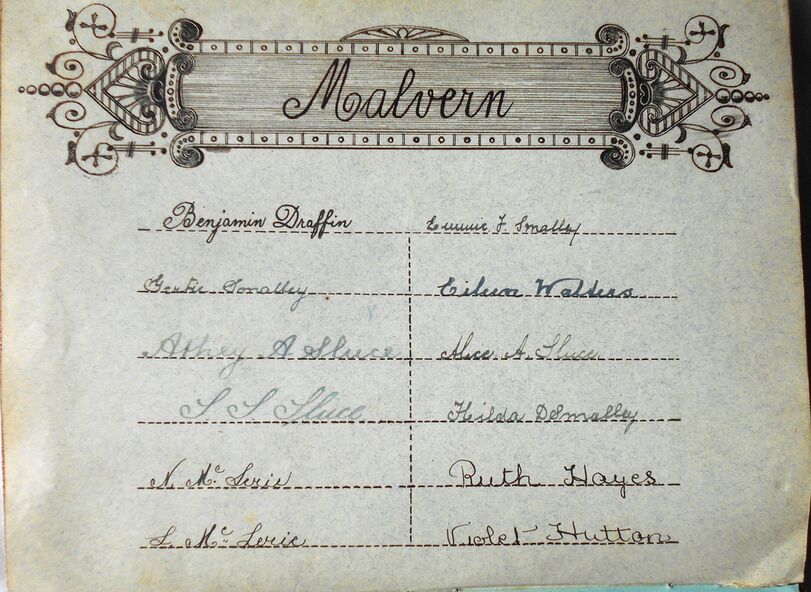 Malvern
Benjamin Draffin
Emmie F. Smalley
Gertie Smalley
Eileen Walters
Athey A Sluce
Alice A. Sluce
S S Sluce
Hilda D Smalley
N. Mc Lerie
Ruth Hayes
L. Mc Lerie
Violet Hutton